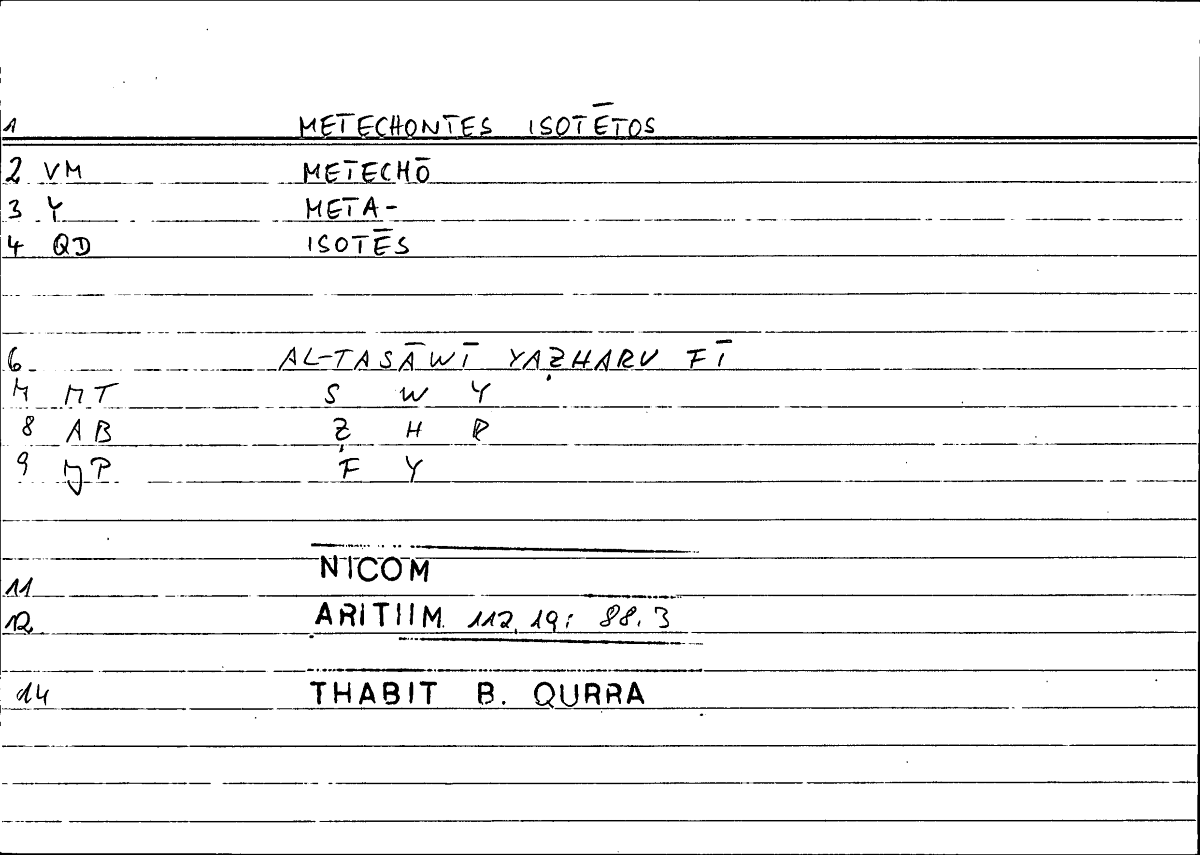 1 METECHONTES ISOTĒTOS
2 VM METECHŌ
3 Y META-
4 QD ISOTĒS
6 AL-TASĀWĪ YAẒHARU FĪ
7 MT S W Y
8 AB Ẓ H R
9 JP F Y
11 NICOM
12 ARITIIM 112,19; 88.3
14 THABIT B. QURRA